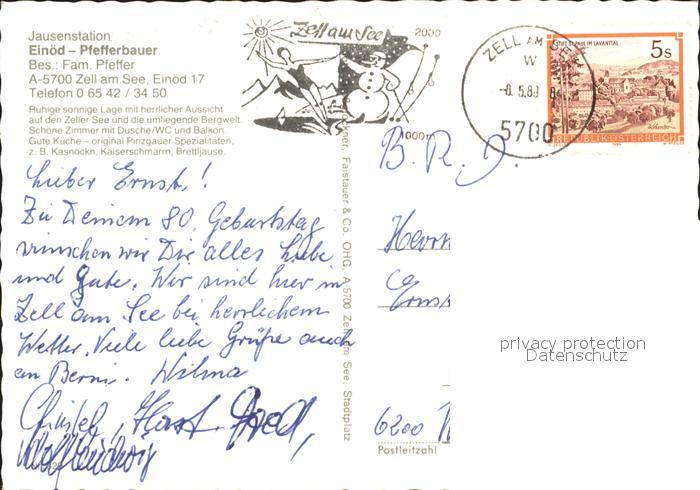 Jausenstation
Einöd – Pfefferbauer
Bes.: Fam. Pfeffer
A-5700 Zell am See, Einöd 17
Telefon 0 65 42 / 34 50
Ruhige sonnige Lage mit herrlicher Aussicht
auf den Zeller See und die umliegende Bergwelt.
Schöne Zimmer mit Dusche/WC und Balkon.
Gute Küche – original Pinzgauer Spezialitäten,
z. B. Kasnockn, Kaiserschmarrn, Brettljause.
Zell am See
2000
1000m
ZELL AM
W
-8.5.89
5700
STIFT ST. PAUL IM LAVANTTAL
5 S
REPUBLIK ÖSTERREICH
Lieber Ernst!
Zu Deinem 80. Geburtstag
wünschen wir Dir alles Liebe
und Gute. Wir sind hier in
Zell am See bei herrlichem
Wetter. Viele liebe Grüße auch
an Berni. Wilma
Christel, Horst.
Faistauer & Co. OHG, A-5700 Zell am See, Stadtplatz
B. R. D.
Herrn
Ernst
6200
Postleitzahl
privacy protection
Datenschutz